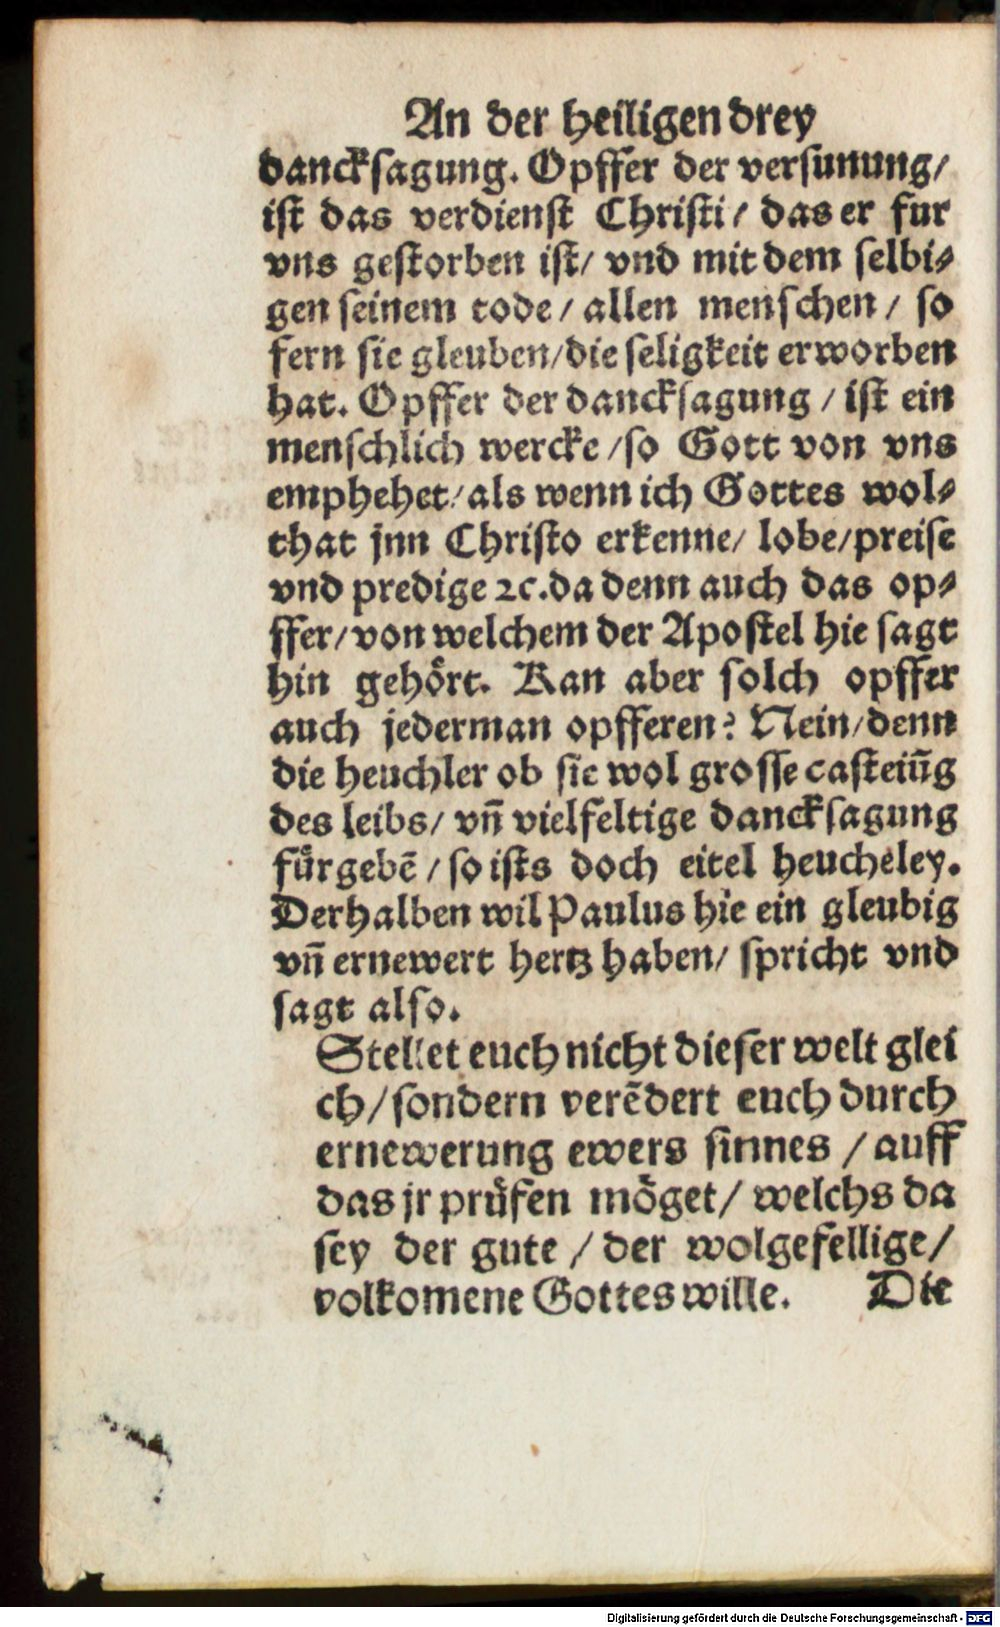 An der heiligen drey
dancksagung. Opffer der versunung/
ist das verdienst Christi/ das er fur
vns gestorben ist/ vnd mit dem selbi⸗
gen seinem tode/ allen menschen/ so
fern sie gleuben/die seligkeit erworben
hat. Opffer der dancksagung/ ist ein
menschlich wercke/so Gott von vns
emphehet/als wenn ich Gottes wol⸗
that jnn Christo erkenne/ lobe/preise
vnd predige ꝛc.da denn auch das op⸗
ffer/von welchem der Apostel hie sagt
hin gehört. Kan aber solch opffer
auch jederman opfferen? Nein/denn
die heuchler ob sie wol grosse casteiūg
des leibs/ vn̄ vielfeltige dancksagung
fürgebē/so ists doch eitel heucheley.
Derhalben wil Paulus hie ein gleubig
vn̄ ernewert hertz haben/ spricht vnd
sagt also.
Stellet euch nicht dieser welt glei
ch/sondern verēdert euch durch
ernewerung ewers sinnes/auff
das jr prüfen möget/ welchs da
sey der gute/der wolgefellige/
volkomene Gottes wille. Die
Digitalisierung gefördert durch die Deutsche Forschungsgemeinschaft - DFG